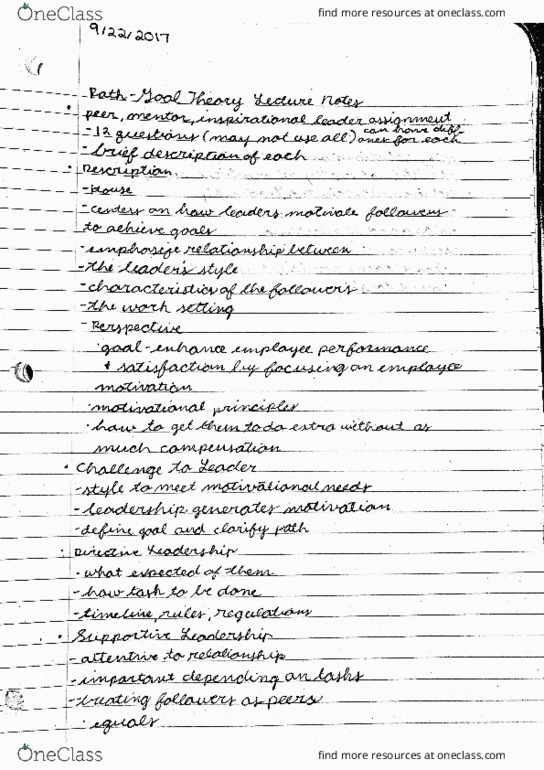 OneClass
find more resources at oneclass.com
9/22/2017
- Path-Goal Theory Lecture Notes
• peer, mentor, inspirational leader assignment
- 12 questions (may not use all) can have diff. ones for each
- brief description of each
• Description
- House
- centers on how leaders motivate followers
to achieve goals
- emphasize relationship between
- the leader's style
- characteristics of the followers
- the work setting
- Perspective
· goal - enhance employee performance
& satisfaction by focusing on employee
motivation
· motivational principles
· how to get them to do extra without as
much compensation
• Challenge to Leader
- style to meet motivational needs
- leadership generates motivation
- define goal and clarify path
• Directive Leadership
- what expected of them
- how task to be done
- timeline, rules, regulations
• Supportive Leadership
- attentive to relationship
- important depending on tasks
- treating followers as peers
· equals
OneClass
find more resources at oneclass.com